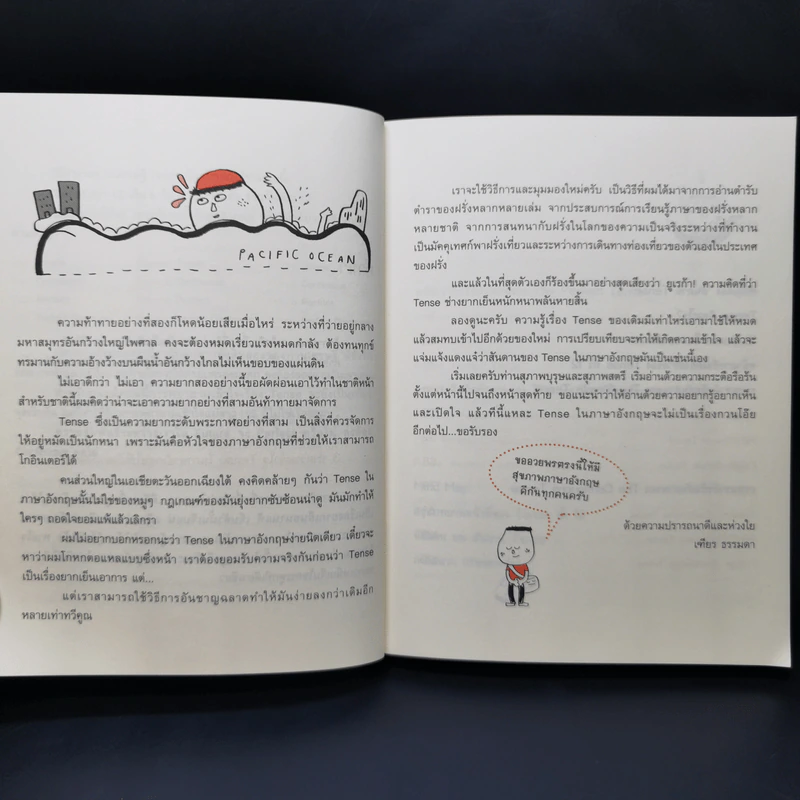 PACIFIC OCEAN
ความท้าทายอย่างที่สองก็โหดน้อยเสียเมื่อไหร่ ระหว่างที่ว่ายอยู่กลาง
มหาสมุทรอันกว้างใหญ่ไพศาล คงจะต้องหมดเรี่ยวแรงหมดกำลัง ต้องทนทุกข์
ทรมานกับความอ้างว้างบนผืนน้ำอันกว้างไกลไม่เห็นขอบของแผ่นดิน
ไม่เอาดีกว่า ไม่เอา ความยากสองอย่างนี้ขอผัดผ่อนเอาไว้ทำในชาติหน้า
สำหรับชาตินี้ผมคิดว่าน่าจะเอาความยากอย่างที่สามอันท้าทายมาจัดการ
Tense ซึ่งเป็นความยากระดับพระกาฬอย่างที่สาม เป็นสิ่งที่ควรจัดการ
ให้อยู่หมัดเป็นนักหนา เพราะมันคือหัวใจของภาษาอังกฤษที่ช่วยให้เราสามารถ
โกอินเตอร์ได้
คนส่วนใหญ่ในเอเชียตะวันออกเฉียงใต้ คงคิดคล้ายๆ กันว่า Tense ใน
ภาษาอังกฤษนั้นไม่ใช่ของหมูๆ กฎเกณฑ์ของมันยุ่งยากซับซ้อนน่าดู มันมักทำให้
ใครๆ ถอดใจยอมแพ้แล้วเลิกรา
ผมไม่อยากบอกหรอกนะว่า Tense ในภาษาอังกฤษง่ายนิดเดียว เดี๋ยวจะ
หาว่าผมโกหกตอแหลแบบซึ่งหน้า เราต้องยอมรับความจริงกันก่อนว่า Tense
เป็นเรื่องยากเย็นเอาการ แต่...
แต่เราสามารถใช้วิธีการอันชาญฉลาดทำให้มันง่ายลงกว่าเดิมอีก
หลายเท่าทวีคูณ
เราจะใช้วิธีการและมุมมองใหม่ครับ เป็นวิธีที่ผมได้มาจากการอ่านตำรับ
ตำราของฝรั่งหลากหลายเล่ม จากประสบการณ์การเรียนรู้ภาษาของฝรั่งหลาก
หลายชาติ จากการสนทนากับฝรั่งในโลกของความเป็นจริงระหว่างที่ทำงาน
เป็นมัคคุเทศก์พาฝรั่งเที่ยวและระหว่างการเดินทางท่องเที่ยวของตัวเองในประเทศ
ของฝรั่ง
และแล้วในที่สุดตัวเองก็ร้องขึ้นมาอย่างสุดเสียงว่า ยูเรก้า! ความคิดที่ว่า
Tense ช่างยากเย็นหนักหนาพลันหายสิ้น
ลองดูนะครับ ความรู้เรื่อง Tense ของเดิมมีเท่าไหร่เอามาใช้ให้หมด
แล้วสมทบเข้าไปอีกด้วยของใหม่ การเปรียบเทียบจะทำให้เกิดความเข้าใจ แล้วจะ
แจ่มแจ้งแดงแจ๋ว่าสันดานของ Tense ในภาษาอังกฤษมันเป็นเช่นนี้เอง
เริ่มเลยครับท่านสุภาพบุรุษและสุภาพสตรี เริ่มอ่านด้วยความกระตือรือร้น
ตั้งแต่หน้านี้ไปจนถึงหน้าสุดท้าย ขอแนะนำว่าให้อ่านด้วยความอยากรู้อยากเห็น
และเปิดใจ แล้วทีนี้แหละ Tense ในภาษาอังกฤษจะไม่เป็นเรื่องกวนโอ๊ย
อีกต่อไป...ขอรับรอง
ขออวยพรตรงนี้ให้มี
สุขภาพภาษาอังกฤษ
ดีกันทุกคนครับ
ด้วยความปรารถนาดีและห่วงใย
เฑียร ธรรมดา